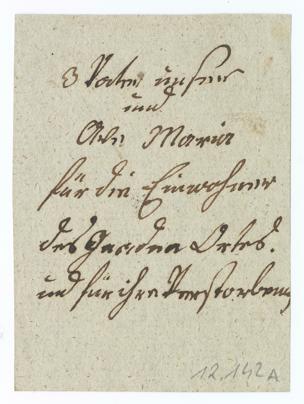 3 Vater unser
und
Ave Maria
für die Einwohner
des Gnaden Ortes.
und für ihre Verstorbenen
12.142A